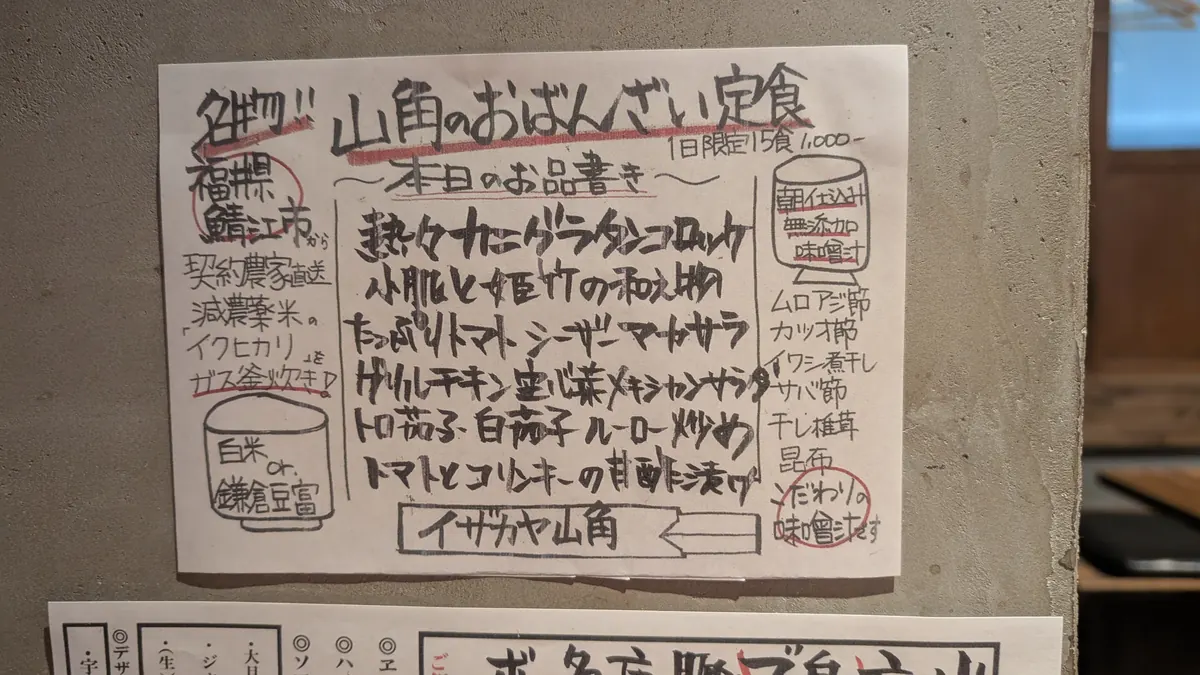 名物!! 山角のおばんざい定食
1日限定15食 1,000-
福井県
鯖江市から
契約農家直送
減農薬米の
「イクヒカリ」を
ガス釜炊き!
白米
or.
鎌倉豆富
〜本日のお品書き〜
熱々カニグラタンコロッケ
小肌と姫竹の和え物
たっぷりトマトシーザーマカサラ
グリルチキン空心菜メキシカンサラダ
トロ茄子・白茄子ルーロー炒め
トマトとコリンキーの甘酢漬け
イザカヤ山角
朝仕込み
無添加
味噌汁
ムロアジ節
カツオ節
イワシ煮干し
サバ節
干し椎茸
昆布
こだわりの
味噌汁です
◎デザ
・宇
（生
・ジ
・大
◎ソ
◎ハ
◎ヱ